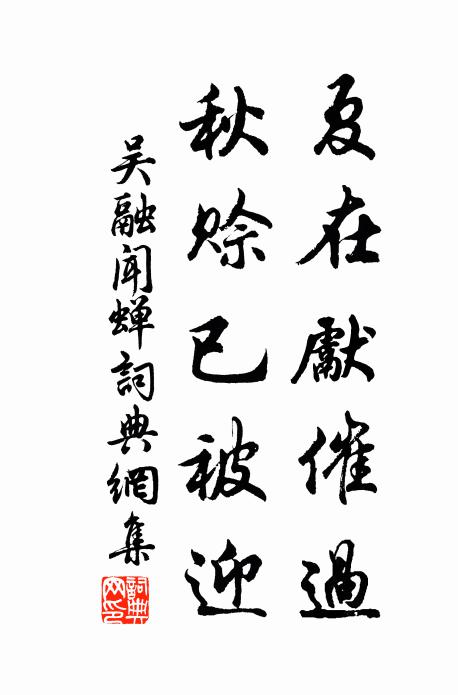 夏在獻催過
秋赊已被迎
吴融闻蝉詞典網集
詞典
网印